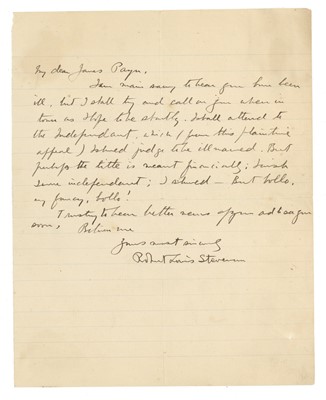 My dear James Payn,
I am main sorry to hear you have been
ill, but I shall try and call on you when in
town as I hope to be shortly. I shall attend to
the Independant, which (from this plaintive
appeal) I should judge to be illnamed. But
perhaps the title is meant financially; I wish
I were independant; I should — But lolls,
my fancy, lolls!
Trusting to hear better news of you and to see you
soon, Believe me
Yours most sincerely
Robert Louis Stevenson